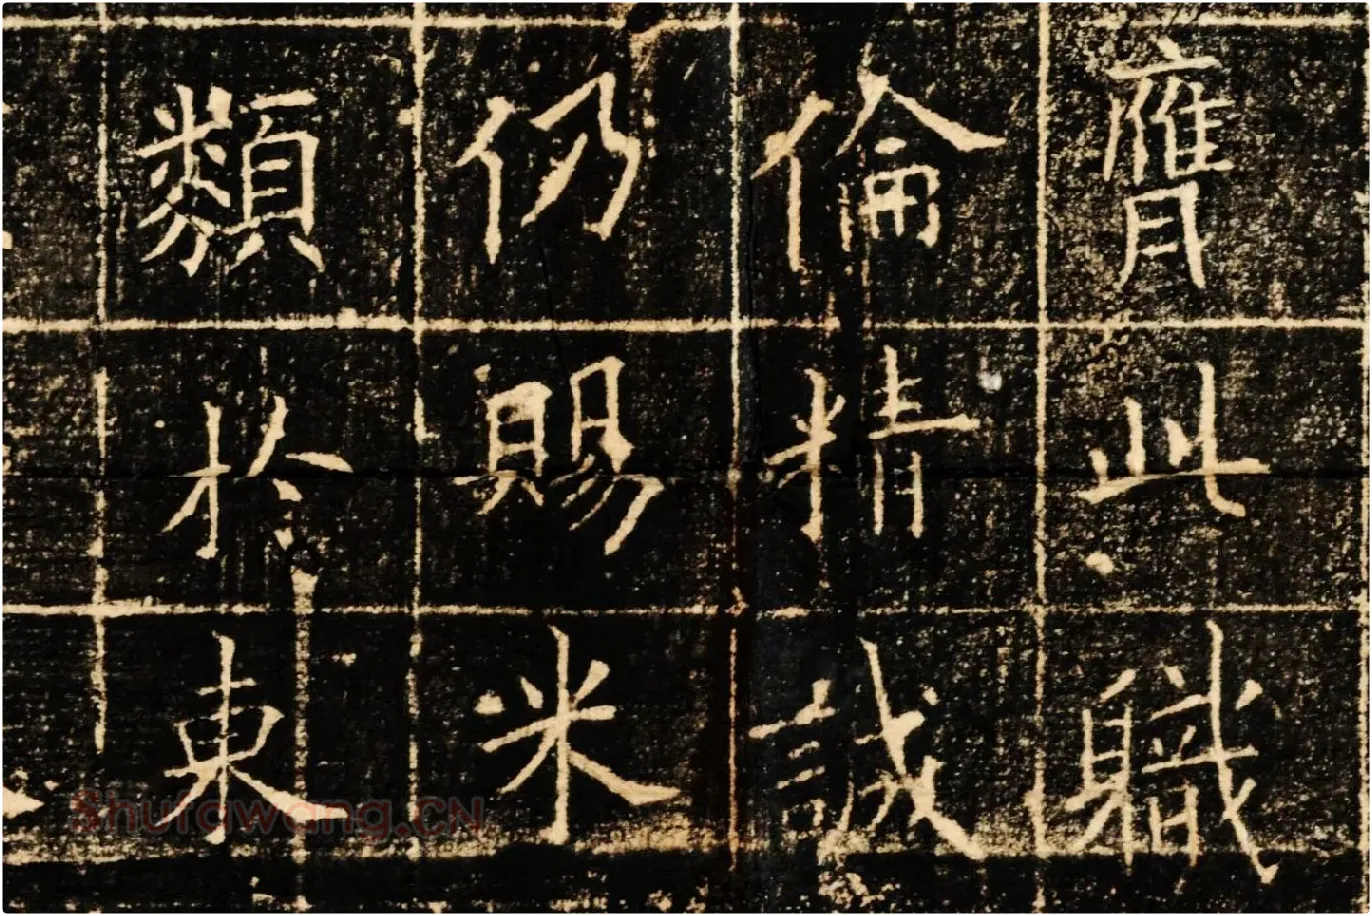 膺此職
倫精誠
仍賜米
類於東
Shufawang.CN